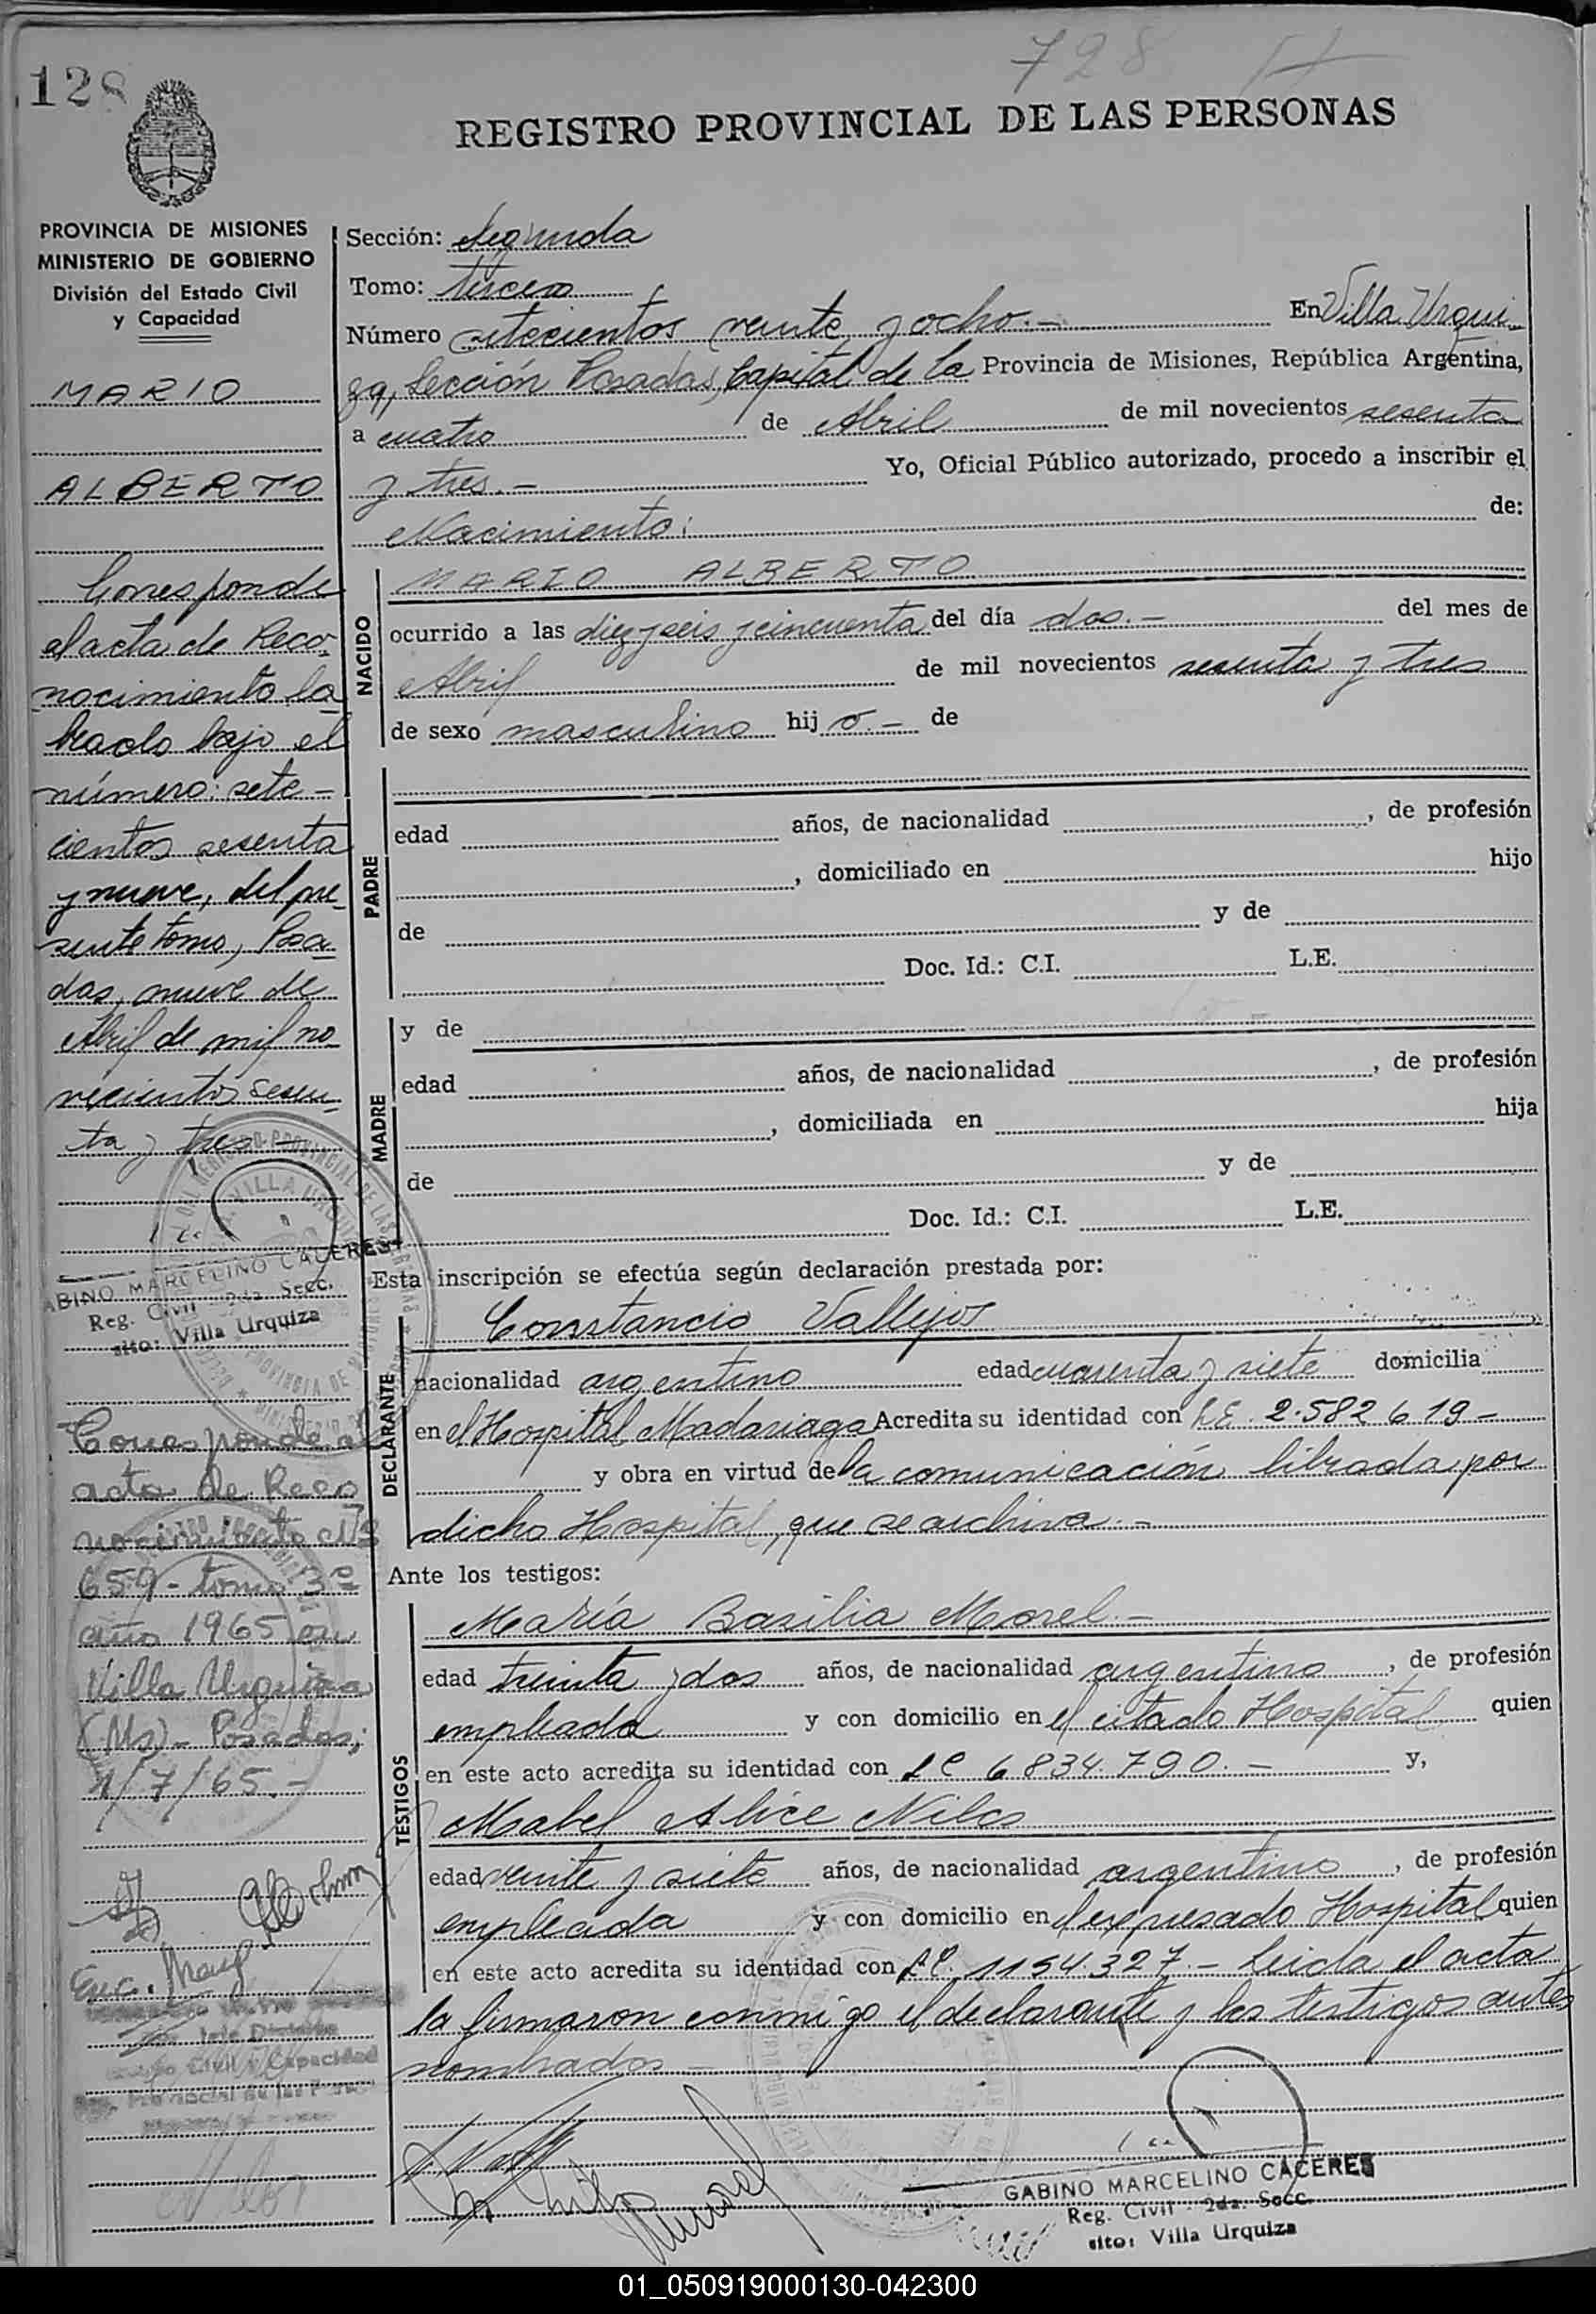 128
728
REGISTRO PROVINCIAL DE LAS PERSONAS
PROVINCIA DE MISIONES
MINISTERIO DE GOBIERNO
División del Estado Civil
y Capacidad
MARIO
ALBERTO
Corresponde
el acta de Reco-
nocimiento la
brado bajo el
número: sete-
cientos sesenta
y nueve, del pre
sente tomo, Posa
das, nueve de
Abril de mil no
vecientos sesen-
ta y tres
ABINO MARCELINO CACERES
Reg. Civil - 2da. Secc.
sito: Villa Urquiza
Corresponde al
acta de Reco
nocimiento Nº
659 - tomo 3º
año 1965 en
Villa Urquiza
(Ms) - Posadas,
1/7/65.-
Sección: Segunda
Tomo: tercero
Número setecientos veinte y ocho.- En Villa Urqui-
za, Sección Posadas, Capital de la Provincia de Misiones, República Argentina,
a cuatro de Abril de mil novecientos sesenta
y tres.- Yo, Oficial Público autorizado, procedo a inscribir el
Nacimiento: de:
NACIDO
MARIO ALBERTO
ocurrido a las diez y seis y cincuenta del día dos.- del mes de
Abril de mil novecientos sesenta y tres
de sexo masculino hij o.- de
PADRE
edad años, de nacionalidad , de profesión
, domiciliado en hijo
de y de
Doc. Id.: C.I. L.E.
MADRE
y de
edad años, de nacionalidad , de profesión
, domiciliada en hija
de y de
Doc. Id.: C.I. L.E.
Esta inscripción se efectúa según declaración prestada por:
DECLARANTE
Constancio Vallejos
nacionalidad argentino edad cuarenta y siete domicilia
en el Hospital Madariaga Acredita su identidad con L E. 2.582 619-
y obra en virtud de la comunicación librada por
dicho Hospital, que se archiva.-
Ante los testigos:
TESTIGOS
María Basilia Morel.-
edad treinta y dos años, de nacionalidad argentina , de profesión
empleada y con domicilio en el citado Hospital quien
en este acto acredita su identidad con L C 6 834.790.- y,
Mabel Alice Nilos
edad veinte y siete años, de nacionalidad argentina , de profesión
empleada y con domicilio en el expresado Hospital quien
en este acto acredita su identidad con L C. 1154.327.- Leida el acta
la firmaron conmigo el declarante y los testigos antes
nombrados
GABINO MARCELINO CACERES
Reg. Civil - 2da. Secc.
sito: Villa Urquiza
01_050919000130-042300